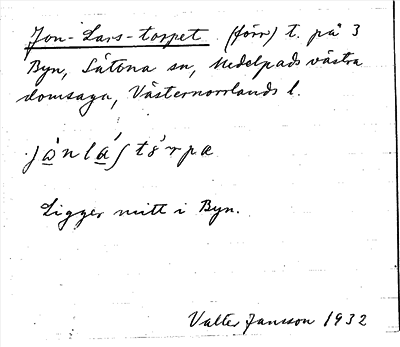 Jon-Lars-torpet (förr) t. på 3
Byn, Sättna sn, Medelpads västra
domsaga, Västernorrlands l.
Ligger mitt i Byn.
Valter Jansson 1932